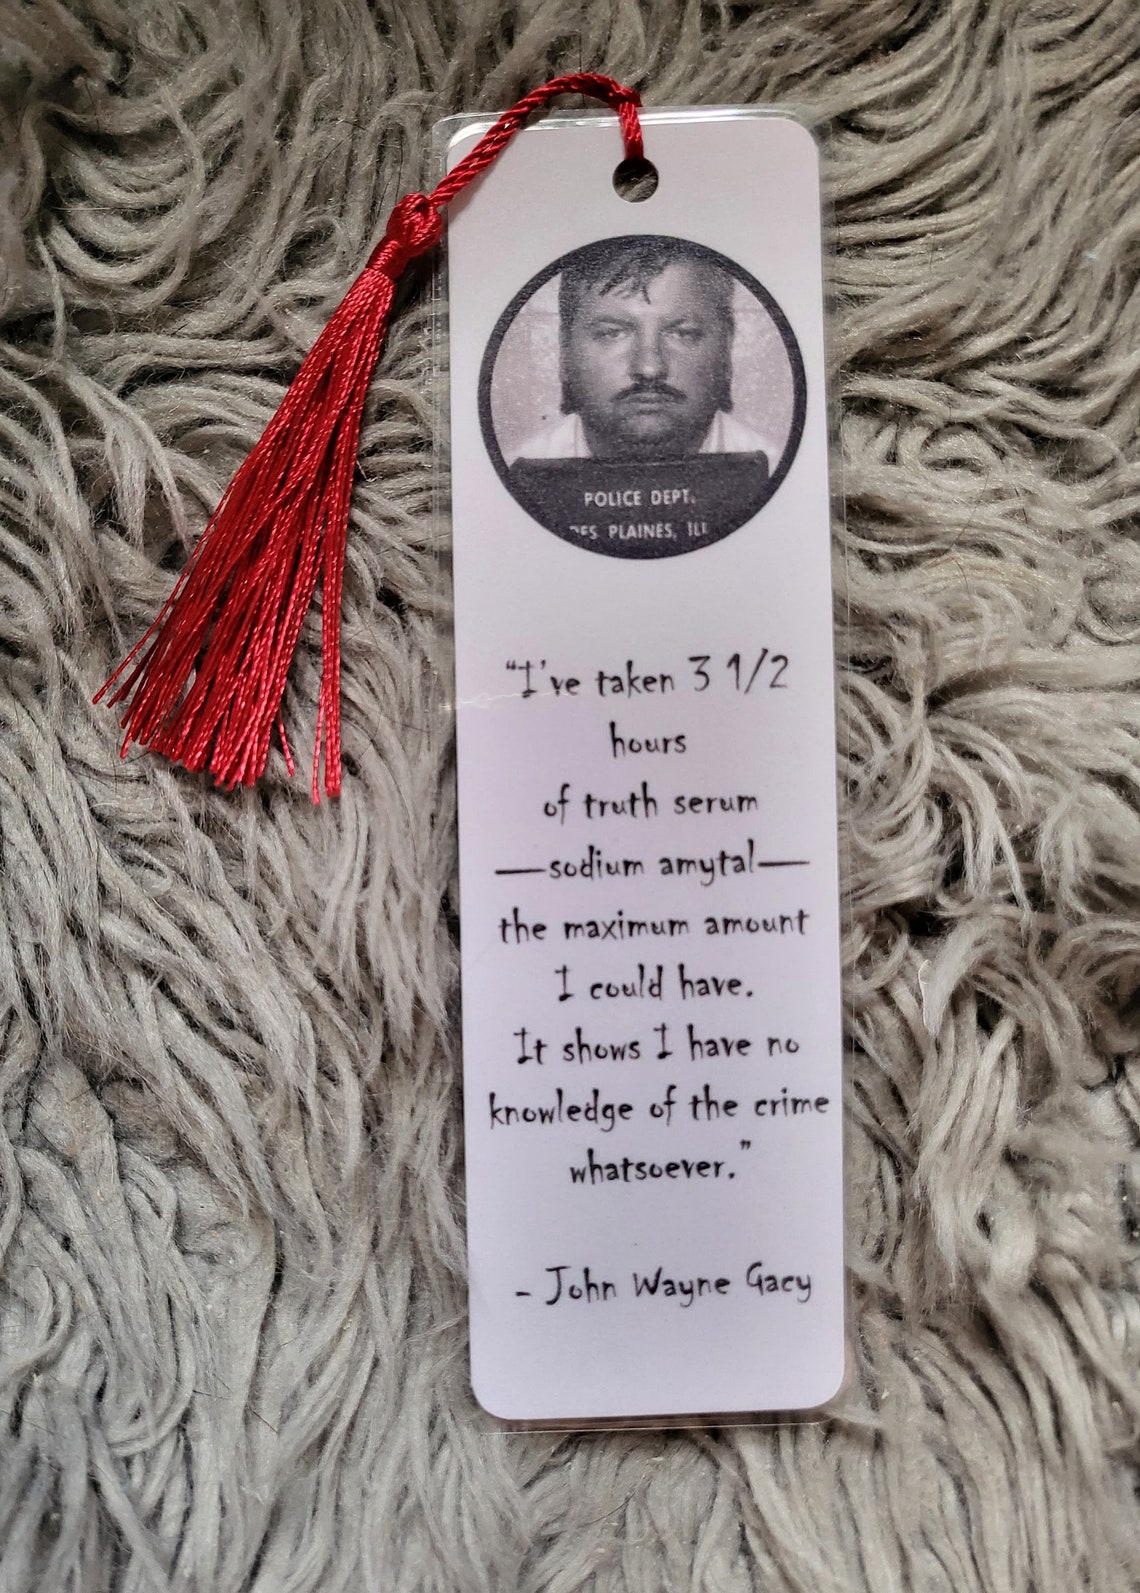 POLICE DEPT.
DES PLAINES, ILL
“I’ve taken 3 1/2
hours
of truth serum
—sodium amytal—
the maximum amount
I could have.
It shows I have no
knowledge of the crime
whatsoever.”
- John Wayne Gacy